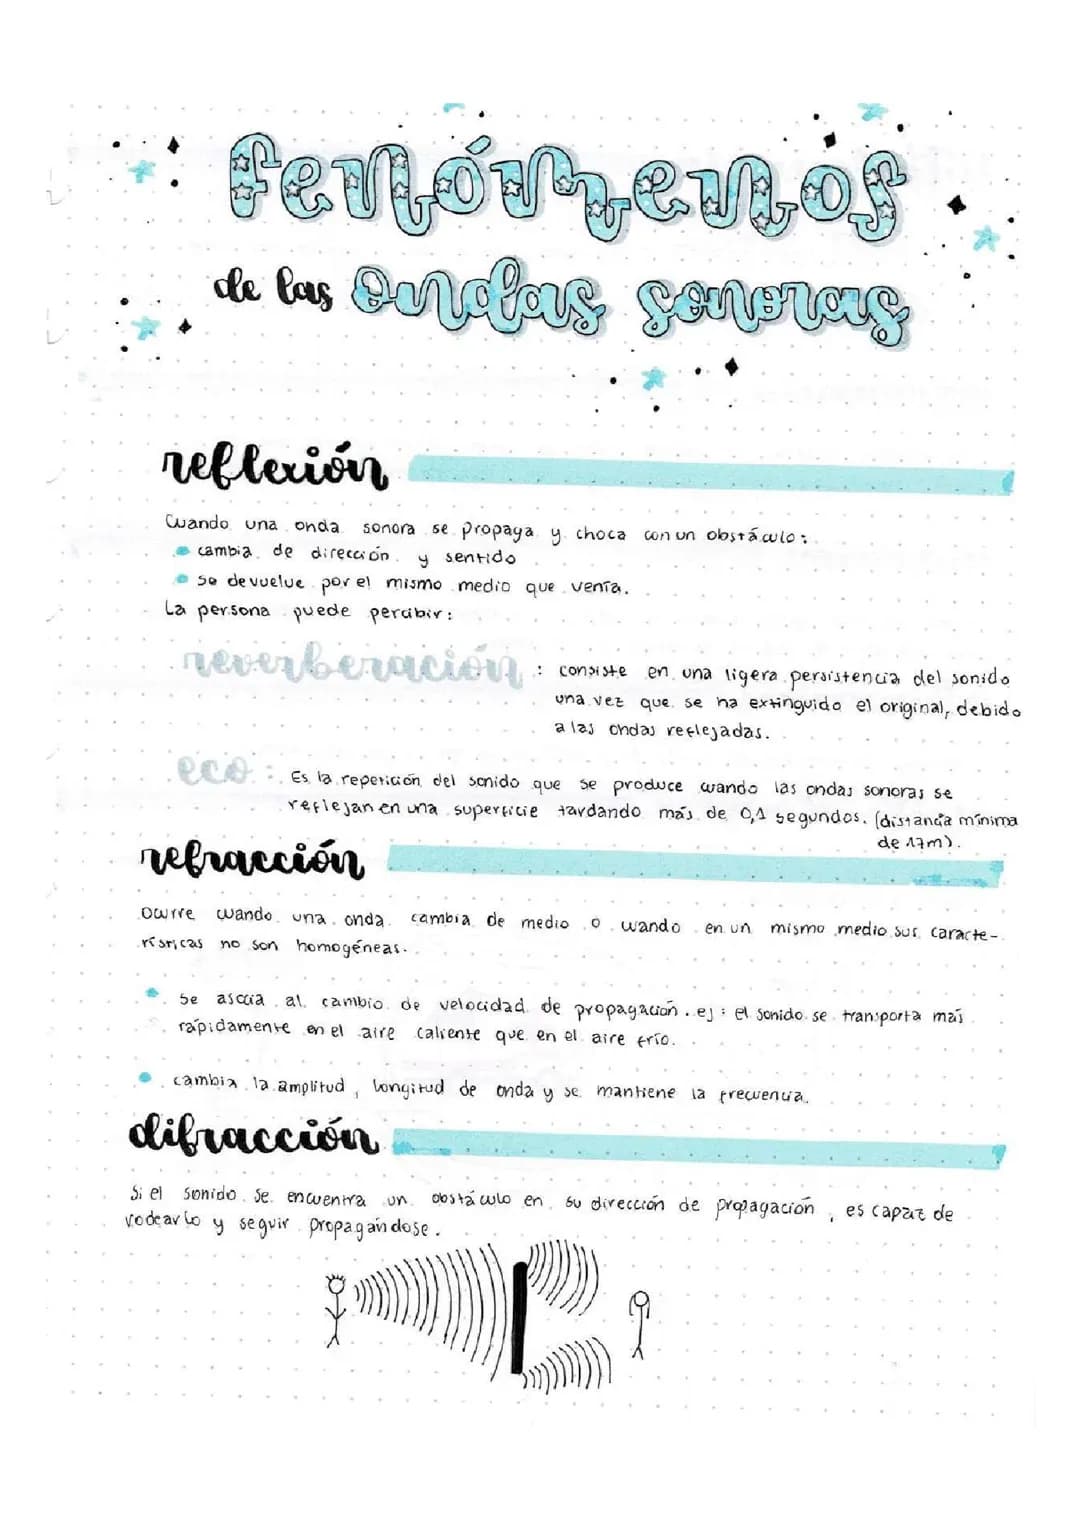 fenómenos
de las ondas sonoras
reflexión
Cuando una onda sonora se propaga y choca con un obstáculo:
cambia de dirección y sentido
se devuelve por el mismo medio que venía.
La persona puede percibir:
reverberación: consiste en una ligera persistencia del sonido
una vez que se ha extinguido el original, debido
a las ondas reflejadas.
eco: Es la repetición del sonido que se produce cuando las ondas sonoras se
reflejan en una superficie tardando más de 0,1 segundos. (distancia mínima
de 17m).
refracción
Ocurre cuando una onda cambia de medio o cuando en un mismo medio sus caracte-
rísticas no son homogéneas.
Se asocia al cambio de velocidad de propagación. ej: el sonido se transporta más
rápidamente en el aire caliente que en el aire frío.
cambia la amplitud, longitud de onda y se mantiene la frecuencia.
difracción
Si el sonido se encuentra un obstáculo en su dirección de propagación, es capaz de
rodearlo y seguir propagándose.